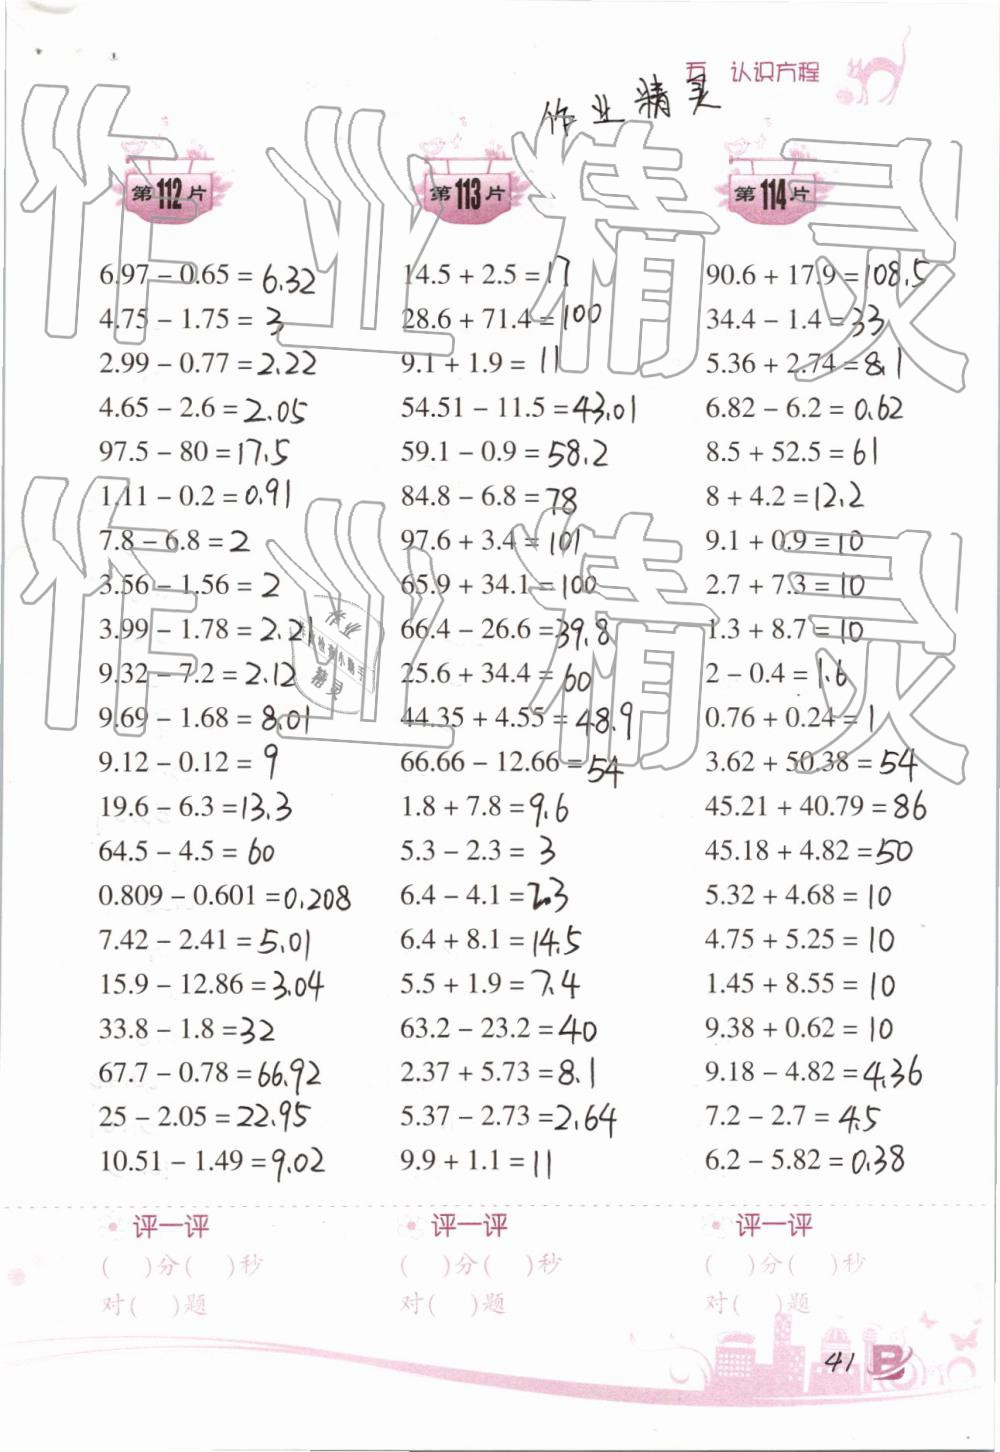 五 认识方程
作业精灵
第112片
6.97 − 0.65 = 6.32
4.75 − 1.75 = 3
2.99 − 0.77 = 2.22
4.65 − 2.6 = 2.05
97.5 − 80 = 17.5
1.11 − 0.2 = 0.91
7.8 − 6.8 = 2
3.56 − 1.56 = 2
3.99 − 1.78 = 2.21
9.32 − 7.2 = 2.12
9.69 − 1.68 = 8.01
9.12 − 0.12 = 9
19.6 − 6.3 = 13.3
64.5 − 4.5 = 60
0.809 − 0.601 = 0.208
7.42 − 2.41 = 5.01
15.9 − 12.86 = 3.04
33.8 − 1.8 = 32
67.7 − 0.78 = 66.92
25 − 2.05 = 22.95
10.51 − 1.49 = 9.02
评一评
( )分( )秒
对( )题
第113片
14.5 + 2.5 = 17
28.6 + 71.4 = 100
9.1 + 1.9 = 11
54.51 − 11.5 = 43.01
59.1 − 0.9 = 58.2
84.8 − 6.8 = 78
97.6 + 3.4 = 101
65.9 + 34.1 = 100
66.4 − 26.6 = 39.8
25.6 + 34.4 = 60
44.35 + 4.55 = 48.9
66.66 − 12.66 = 54
1.8 + 7.8 = 9.6
5.3 − 2.3 = 3
6.4 − 4.1 = 2.3
6.4 + 8.1 = 14.5
5.5 + 1.9 = 7.4
63.2 − 23.2 = 40
2.37 + 5.73 = 8.1
5.37 − 2.73 = 2.64
9.9 + 1.1 = 11
评一评
( )分( )秒
对( )题
第114片
90.6 + 17.9 = 108.5
34.4 − 1.4 = 33
5.36 + 2.74 = 8.1
6.82 − 6.2 = 0.62
8.5 + 52.5 = 61
8 + 4.2 = 12.2
9.1 + 0.9 = 10
2.7 + 7.3 = 10
1.3 + 8.7 = 10
2 − 0.4 = 1.6
0.76 + 0.24 = 1
3.62 + 50.38 = 54
45.21 + 40.79 = 86
45.18 + 4.82 = 50
5.32 + 4.68 = 10
4.75 + 5.25 = 10
1.45 + 8.55 = 10
9.38 + 0.62 = 10
9.18 − 4.82 = 4.36
7.2 − 2.7 = 4.5
6.2 − 5.82 = 0.38
评一评
( )分( )秒
对( )题
作业精灵
作业精灵
作业
精灵
41